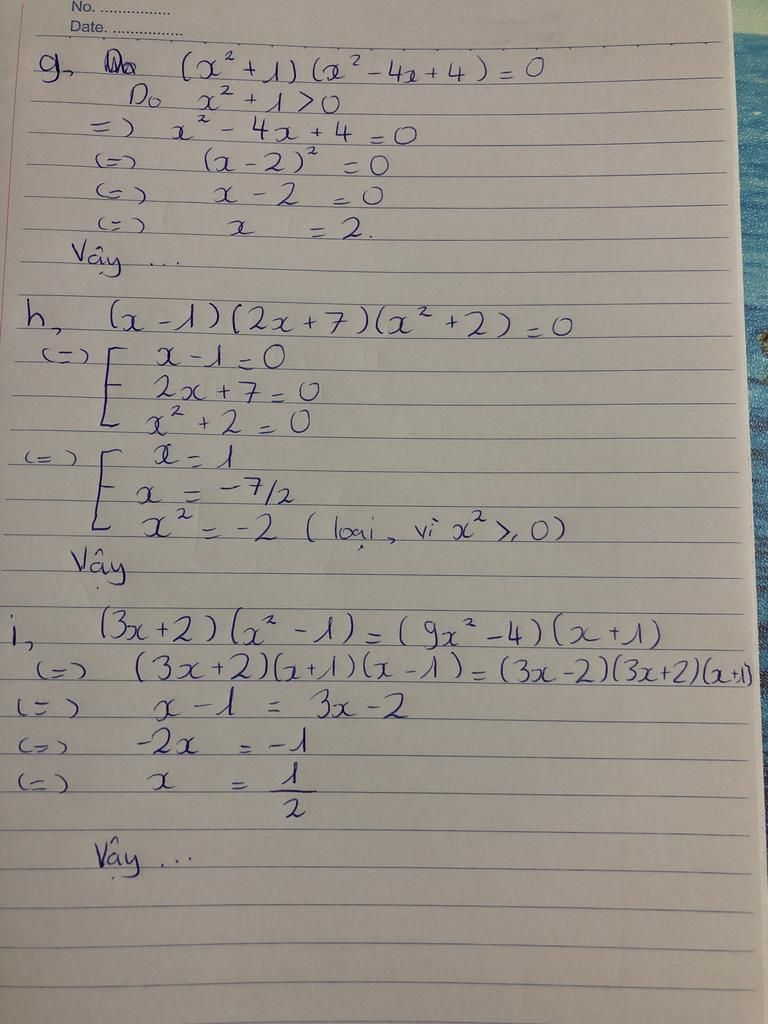 No. ................
Date. ................
g, (x² + 1)(x² - 4x + 4) = 0
Do x² + 1 > 0
=) x² - 4x + 4 = 0
(=) (x - 2)² = 0
(=) x - 2 = 0
(=) x = 2.
Vậy ...
h, (x - 1)(2x + 7)(x² + 2) = 0
(=) [ x - 1 = 0
2x + 7 = 0
x² + 2 = 0
(=) [ x = 1
x = -7/2
x² = -2 (loại, vì x² ≥ 0)
Vậy
i, (3x + 2)(x² - 1) = (9x² - 4)(x + 1)
(=) (3x + 2)(x + 1)(x - 1) = (3x - 2)(3x + 2)(x + 1)
(=) x - 1 = 3x - 2
(=) -2x = -1
(=) x = 1/2
Vậy ...